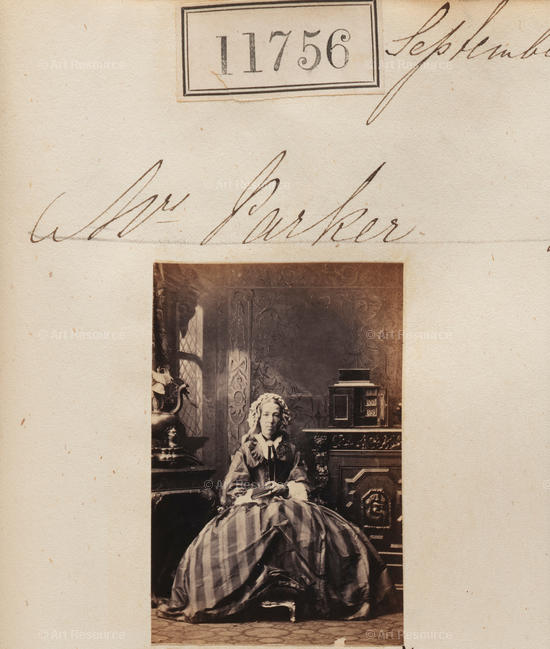 11756
Septembe
Mrs Parker
© Art Resource
© Art Resource
© Art Resource
© Art Resource
© Art Resource
© Art Resource
© Art Resource
© Art Resource
© Art Resource
© Art Resource